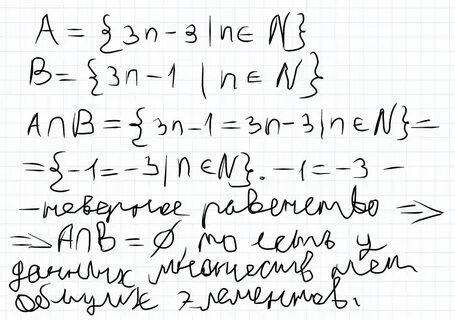 A = {3n-3 | n ∈ N}
B = {3n-1 | n ∈ N}
A∩B = {3n-1 = 3n-3 | n ∈ N} =
= {-1 = -3 | n ∈ N}. -1 = -3 -
- неверное равенство ⇒
⇒ A∩B = ∅, то есть у
данных множеств нет
общих элементов.